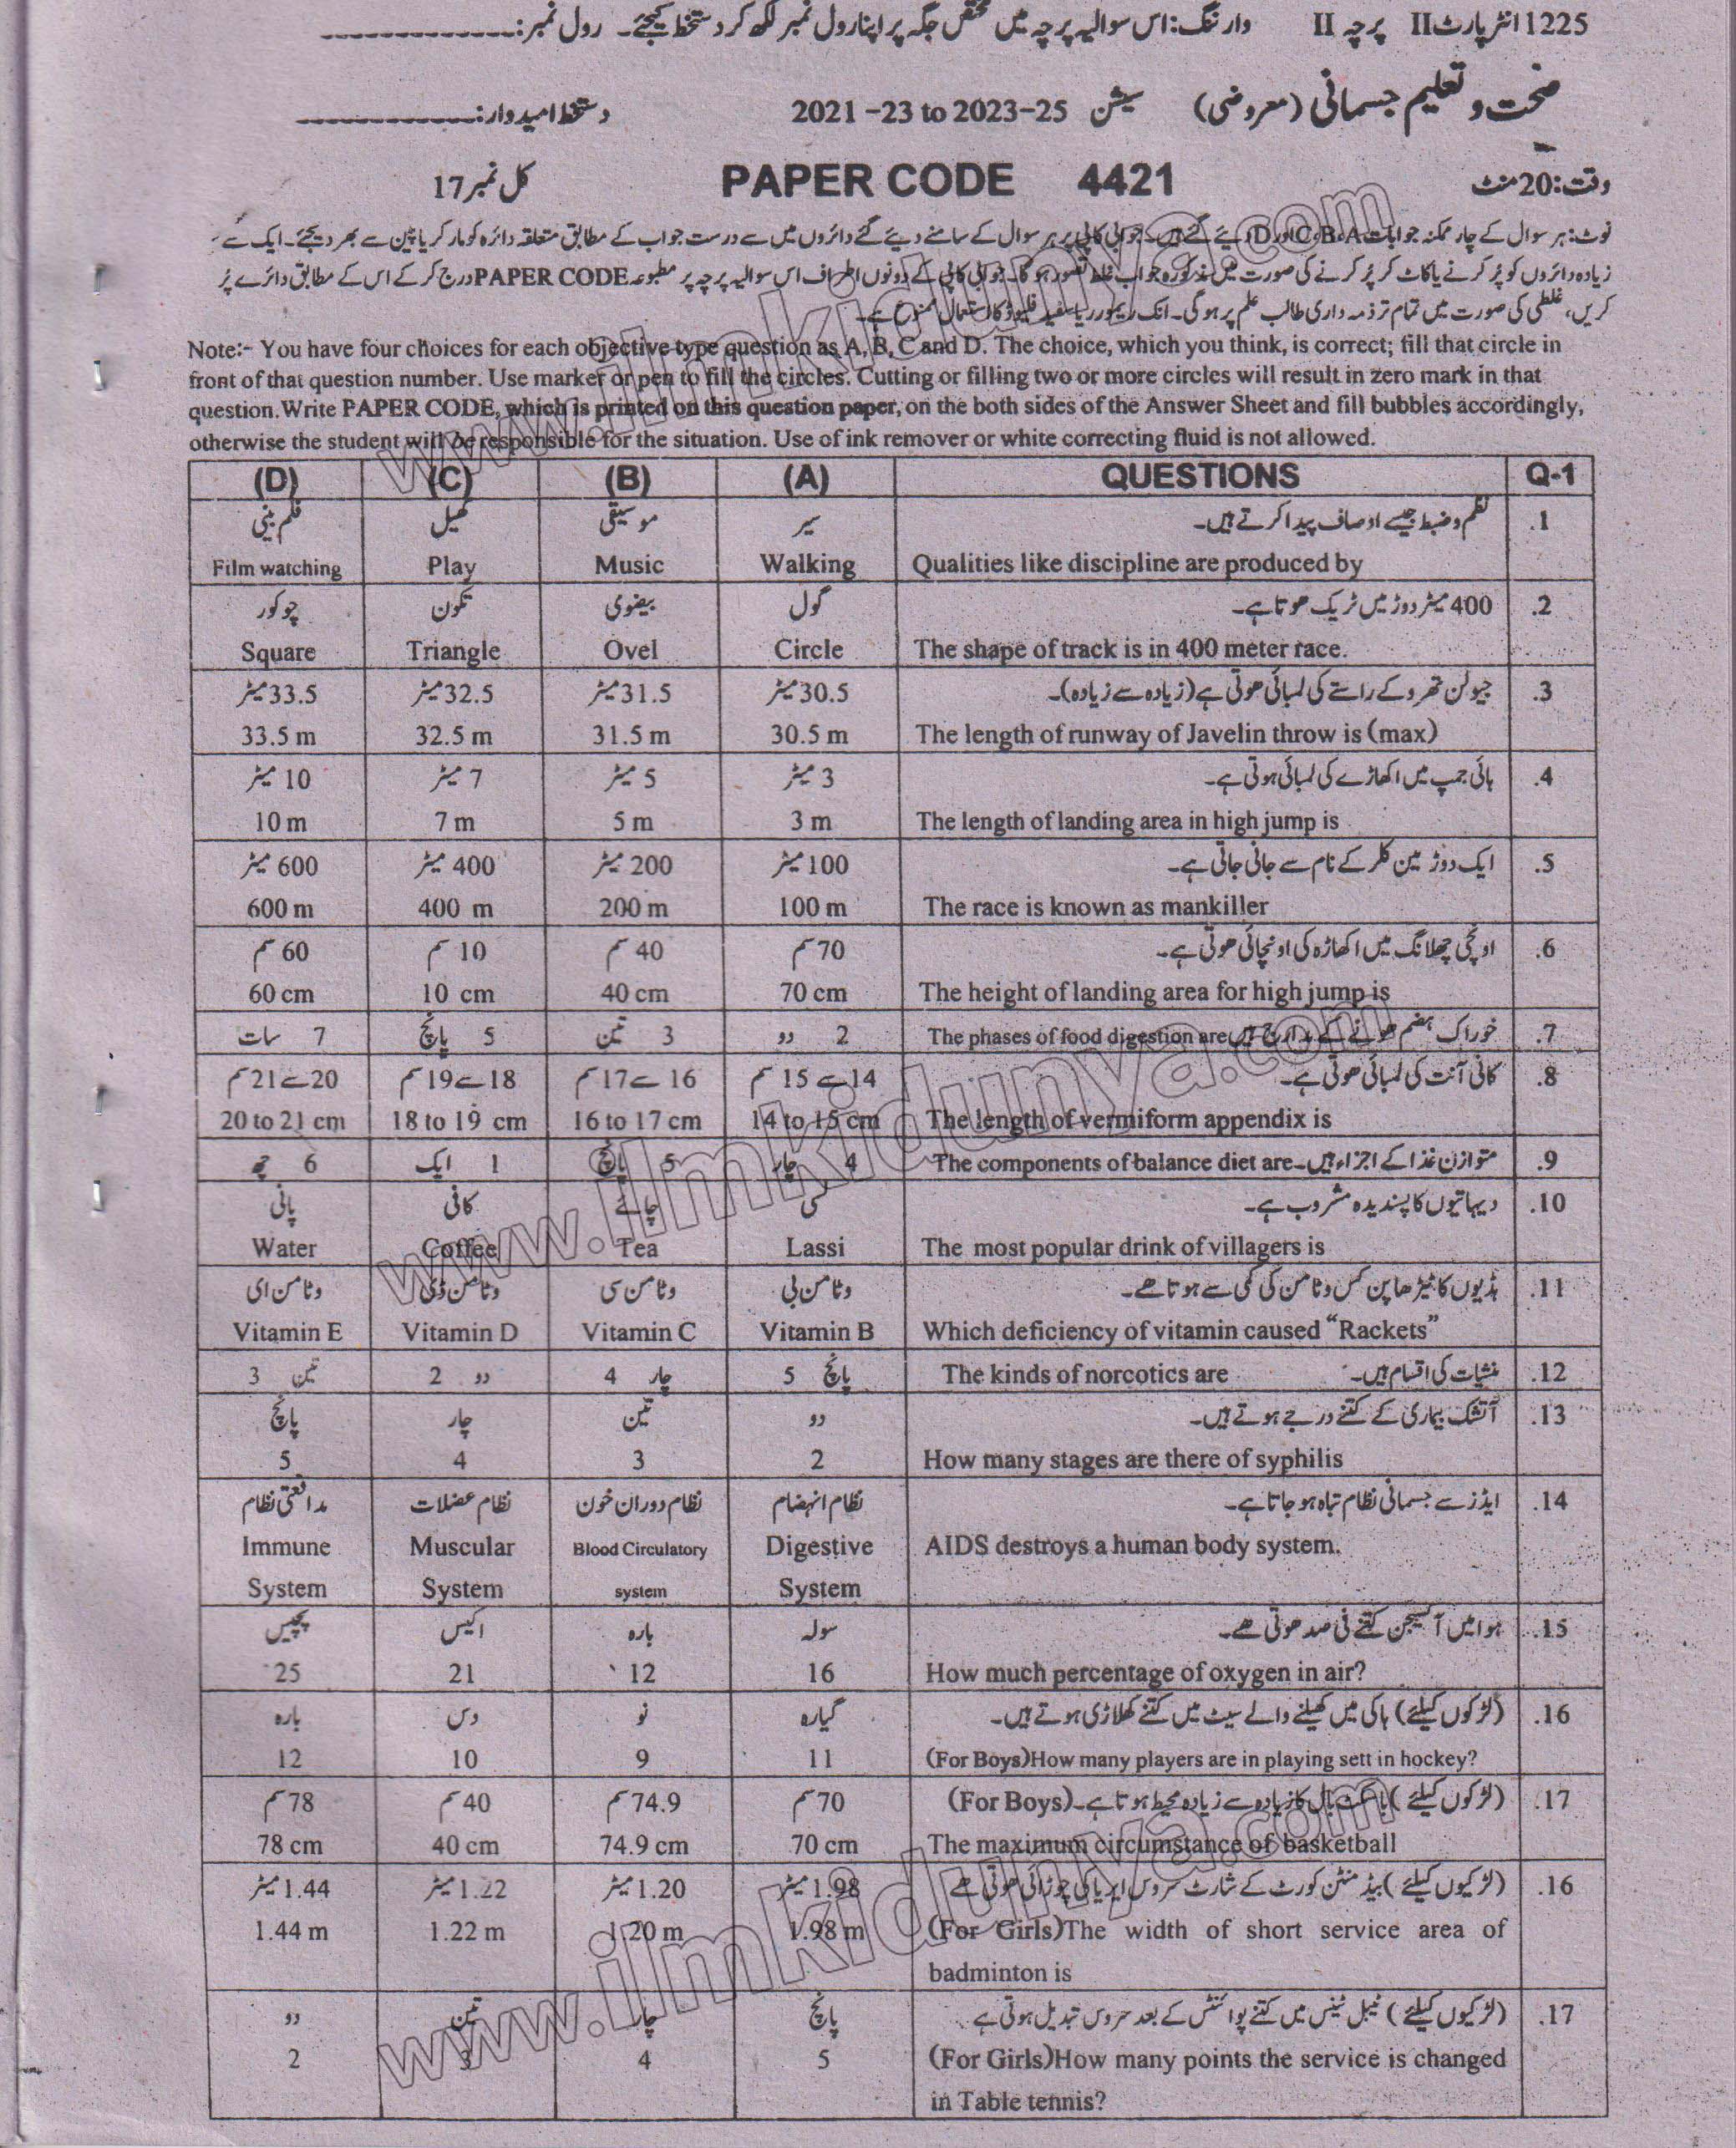 1225 انٹر پارٹ II پرچہ II وارننگ: اس سوالیہ پرچہ میں مختص جگہ پر اپنا رول نمبر لکھ کر دستخط کیجئے۔ رول نمبر: --------------
صحت و تعلیم جسمانی (معروضی) سیشن 2021 -23 to 2023-25 دستخط امیدوار: --------------
وقت: 20 منٹ PAPER CODE 4421 کل نمبر 17
نوٹ: ہر سوال کے چار ممکنہ جوابات A، B، C اور D دیئے گئے ہیں۔ جوابی کاپی پر ہر سوال کے سامنے دیئے گئے دائروں میں سے درست جواب کے مطابق متعلقہ دائرہ کو مارکر یا پین سے بھر دیجئے۔ ایک سے
زیادہ دائروں کو پُر کرنے یا کاٹ کر پُر کرنے کی صورت میں مذکورہ جواب غلط تصور ہوگا۔ جوابی کاپی کے دونوں اطراف اس سوالیہ پرچہ پر مطبوعہ PAPER CODE درج کر کے اس کے مطابق دائرے پُر
کریں، غلطی کی صورت میں تمام تر ذمہ داری طالب علم پر ہوگی۔ انک ریموور یا سفید فلیوڈ کا استعمال ممنوع ہے۔
Note:- You have four choices for each objective type question as A, B, C and D. The choice, which you think, is correct; fill that circle in
front of that question number. Use marker or pen to fill the circles. Cutting or filling two or more circles will result in zero mark in that
question.Write PAPER CODE, which is printed on this question paper, on the both sides of the Answer Sheet and fill bubbles accordingly,
otherwise the student will be responsible for the situation. Use of ink remover or white correcting fluid is not allowed.
(D) (C) (B) (A) QUESTIONS Q-1
فلم بینی کھیل موسیقی سیر نظم و ضبط جیسے اوصاف پیدا کرتے ہیں۔ .1
Film watching Play Music Walking Qualities like discipline are produced by
چوکور تکون بیضوی گول 400 میٹر دوڑ میں ٹریک ھوتا ہے۔ .2
Square Triangle Ovel Circle The shape of track is in 400 meter race.
33.5 میٹر 32.5 میٹر 31.5 میٹر 30.5 میٹر جیولن تھرو کے راستے کی لمبائی ھوتی ہے (زیادہ سے زیادہ)۔ .3
33.5 m 32.5 m 31.5 m 30.5 m The length of runway of Javelin throw is (max)
10 میٹر 7 میٹر 5 میٹر 3 میٹر ہائی جمپ میں اکھاڑے کی لمبائی ہوتی ہے۔ .4
10 m 7 m 5 m 3 m The length of landing area in high jump is
600 میٹر 400 میٹر 200 میٹر 100 میٹر ایک دوڑ مین کلر کے نام سے جانی جاتی ہے۔ .5
600 m 400 m 200 m 100 m The race is known as mankiller
60 سم 10 سم 40 سم 70 سم اونچی چھلانگ میں اکھاڑہ کی اونچائی ھوتی ہے۔ .6
60 cm 10 cm 40 cm 70 cm The height of landing area for high jump is
7 سات 5 پانچ 3 تین 2 دو The phases of food digestion are خوراک ہضم ھونے کے مدارج ہیں .7
20 سے 21 سم 18 سے 19 سم 16 سے 17 سم 14 سے 15 سم کانی آنت کی لمبائی ھوتی ہے۔ .8
20 to 21 cm 18 to 19 cm 16 to 17 cm 14 to 15 cm The length of vermiform appendix is
6 چھ 1 ایک 5 پانچ 4 چار The components of balance diet are متوازن غذا کے اجزاء ہیں۔ .9
پانی کافی چائے لسی دیہاتیوں کا پسندیدہ مشروب ہے۔ .10
Water Coffee Tea Lassi The most popular drink of villagers is
وٹامن ای وٹامن ڈی وٹامن سی وٹامن بی ہڈیوں کا ٹیڑھا پن کس وٹامن کی کمی سے ہوتا ھے۔ .11
Vitamin E Vitamin D Vitamin C Vitamin B Which deficiency of vitamin caused "Rackets"
3 تین 2 دو 4 چار 5 پانچ The kinds of norcotics are منشیات کی اقسام ہیں۔ .12
پانچ چار تین دو آتشک بیماری کے کتنے درجے ہوتے ہیں۔ .13
5 4 3 2 How many stages are there of syphilis
مدافعتی نظام نظام عضلات نظام دوران خون نظام انہضام ایڈز سے جسمانی نظام تباہ ہو جاتا ہے۔ .14
Immune Muscular Blood Circulatory Digestive AIDS destroys a human body system.
System System system System
پچیس اکیس بارہ سولہ ہوا میں آکسیجن کتنے فی صد ھوتی ھے۔ .15
25 21 12 16 How much percentage of oxygen in air?
بارہ دس نو گیارہ (لڑکوں کیلئے) ہاکی میں کھیلنے والے سیٹ میں کتنے کھلاڑی ہوتے ہیں۔ .16
12 10 9 11 (For Boys)How many players are in playing sett in hockey?
78 سم 40 سم 74.9 سم 70 سم (لڑکوں کیلئے) باسکٹ بال کا زیادہ سے زیادہ محیط ہوتا ہے۔ (For Boys) .17
78 cm 40 cm 74.9 cm 70 cm The maximum circumstance of basketball
1.44 میٹر 1.22 میٹر 1.20 میٹر 1.98 میٹر (لڑکیوں کیلئے) بیڈ منٹن کورٹ کے شارٹ سروس ایریا کی چوڑائی ھوتی ھے .16
1.44 m 1.22 m 1.20 m 1.98 m (For Girls)The width of short service area of
badminton is
دو تین چار پانچ (لڑکیوں کیلئے) ٹیبل ٹینس میں کتنے پوائنٹس کے بعد سروس تبدیل ہوتی ہے .17
2 3 4 5 (For Girls)How many points the service is changed
in Table tennis?
www.ilmkidunya.com
www.ilmkidunya.com
www.ilmkidunya.com